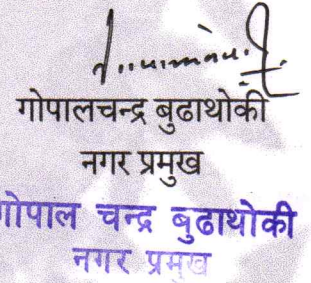 गोपालचन्द्र बुढाथोकी
नगर प्रमुख
गोपाल चन्द्र बुढाथोकी
नगर प्रमुख